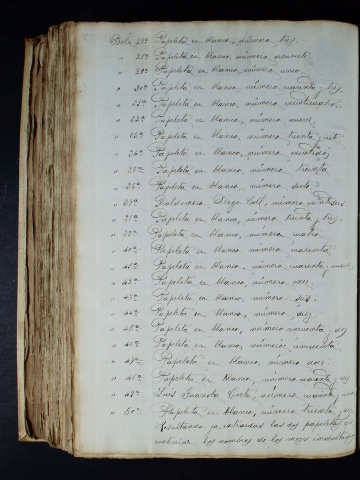 Bola 27ª Papeleta en blanco, número tres.
" 28ª Papeleta en blanco, número
" 29ª Papeleta en blanco, número once.
" 30ª Papeleta en blanco, número cuarenta y tres
" Papeleta en blanco, número veinticuatro.
" Papeleta en blanco, número nueve.
" Papeleta en blanco, número treinta y siete
" 34ª Papeleta en blanco, número veintidos.
" 35ª Papeleta en blanco, número treinta
" 36ª Papeleta en blanco, número siete.
" 37ª Baldomero Diego Coll, número veintiseis
" Papeleta en blanco, número treinta y tres.
" Papeleta en blanco, número cuatro.
" 40ª Papeleta en blanco, número cuarenta.
" 41ª Papeleta en blanco, número cuarenta y nueve.
" 42ª Papeleta en blanco, número
" 43ª Papeleta en blanco, número seis.
" 44ª Papeleta en blanco, número diez
" 45ª Papeleta en blanco, número cincuenta y
" 46ª Papeleta en blanco, número cincuenta.
" 47ª Papeleta en blanco, número doce.
" 48ª Papeleta en blanco, número cuarenta y
" 49ª Luis Costa, número cuarenta y
" 50ª Papeleta en blanco, número treinta y
Resultando ya extraidas las dos papeletas q.
contenian los nombres de los mozos